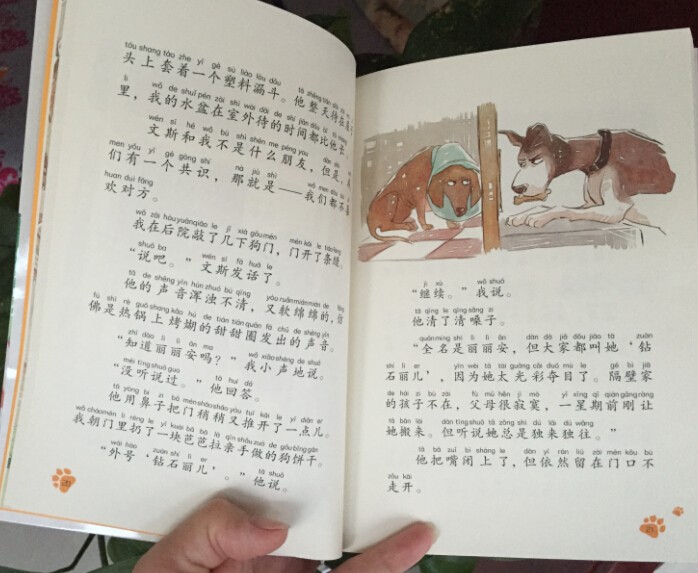 tóu shang tào zhe yí gè sù liào lòu dǒu tā zhěng tiān dāi
头上套着一个塑料漏斗。他整天待在
lǐ wǒ de shuǐ pén zài shì wài dāi de shí jiān dōu bǐ tā
里，我的水盆在室外待的时间都比他长
wén sī hé wǒ bú shì shén me péng you dàn shì
文斯和我不是什么朋友，但是，
men yǒu yí gè gòng shí nà jiù shì wǒ men dōu bù
们有一个共识，那就是——我们都不喜
huan duì fāng
欢对方。
wǒ zài hòu yuàn qiāo le jǐ xià gǒu mén mén kāi le tiáo fèng
我在后院敲了几下狗门，门开了条缝。
shuō ba wén sī fā huà le
“说吧。”文斯发话了。
tā de shēng yīn hún zhuó bù qīng yòu ruǎn mián mián de
他的声音浑浊不清，又软绵绵的，仿
fú shì rè guō shang kǎo hú de tián tián quān fā chū de shēng yīn
佛是热锅上烤煳的甜甜圈发出的声音。
zhī dào lì lì ān ma wǒ xiǎo shēng de shuō
“知道丽丽安吗？”我小声地说。
méi tīng shuō guo tā huí dá
“没听说过。”他回答。
tā yòng bí zi bǎ mén shāo shāo yòu tuī kāi le yì diǎnr
他用鼻子把门稍稍又推开了一点儿。
wǒ cháo mén li rēng le yí kuài bā bā lā qīn shǒu zuò de gǒu bǐng gān
我朝门里扔了一块芭芭拉亲手做的狗饼干。
wài hào zuàn shí lì ér tā shuō
“外号‘钻石丽儿’。”他说。
jì xù wǒ shuō
“继续。”我说。
tā qīng le qīng sǎng zi
他清了清嗓子。
quán míng shì lì lì ān dàn dà jiā dōu jiào tā zuàn
“全名是丽丽安，但大家都叫她‘钻
shí lì ér yīn wèi tā tài guāng cǎi duó mù le gé bì jiā
石丽儿’，因为她太光彩夺目了。隔壁家
de hái zi bú zài fù mǔ hěn jì mò yì xīng qī qián gāng ràng
的孩子不在，父母很寂寞，一星期前刚让
tā bān lái dàn tīng shuō tā zǒng shì dú lái dú wǎng
她搬来。但听说她总是独来独往。”
tā bǎ zuǐ bì shàng le dàn yī rán liú zài mén kǒu bù
他把嘴闭上了，但依然留在门口不
zǒu kāi
走开。
21